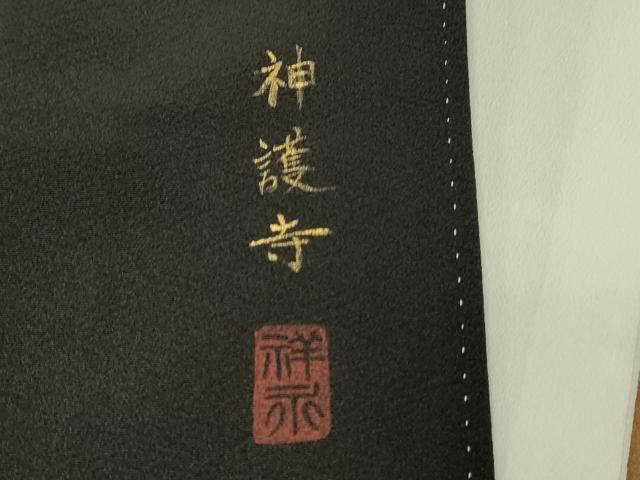 神護寺
祥永